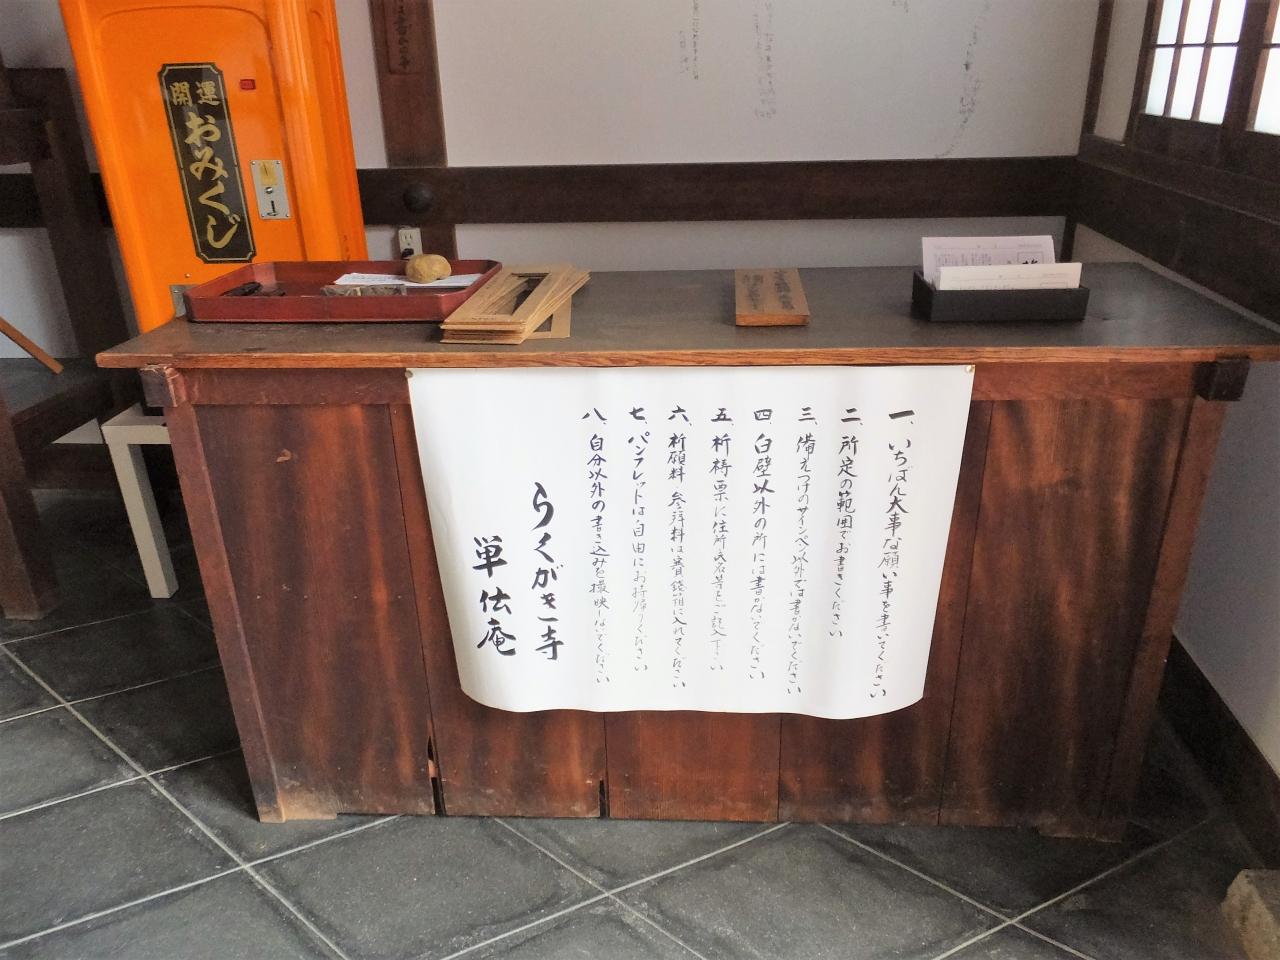 開運
おみくじ
一、いちばん大事な願い事を書いてください
二、所定の範囲でお書きください
三、備えつけのサインペン以外では書かないでください
四、白壁以外の所には書かないでください
五、祈祷票に住所氏名等をご記入下さい
六、祈願料 参拝料は賽銭箱に入れてください
七、パンフレットは自由にお持帰りください
八、自分以外の書き込みを撮映しないでください
らくがき寺
単伝庵